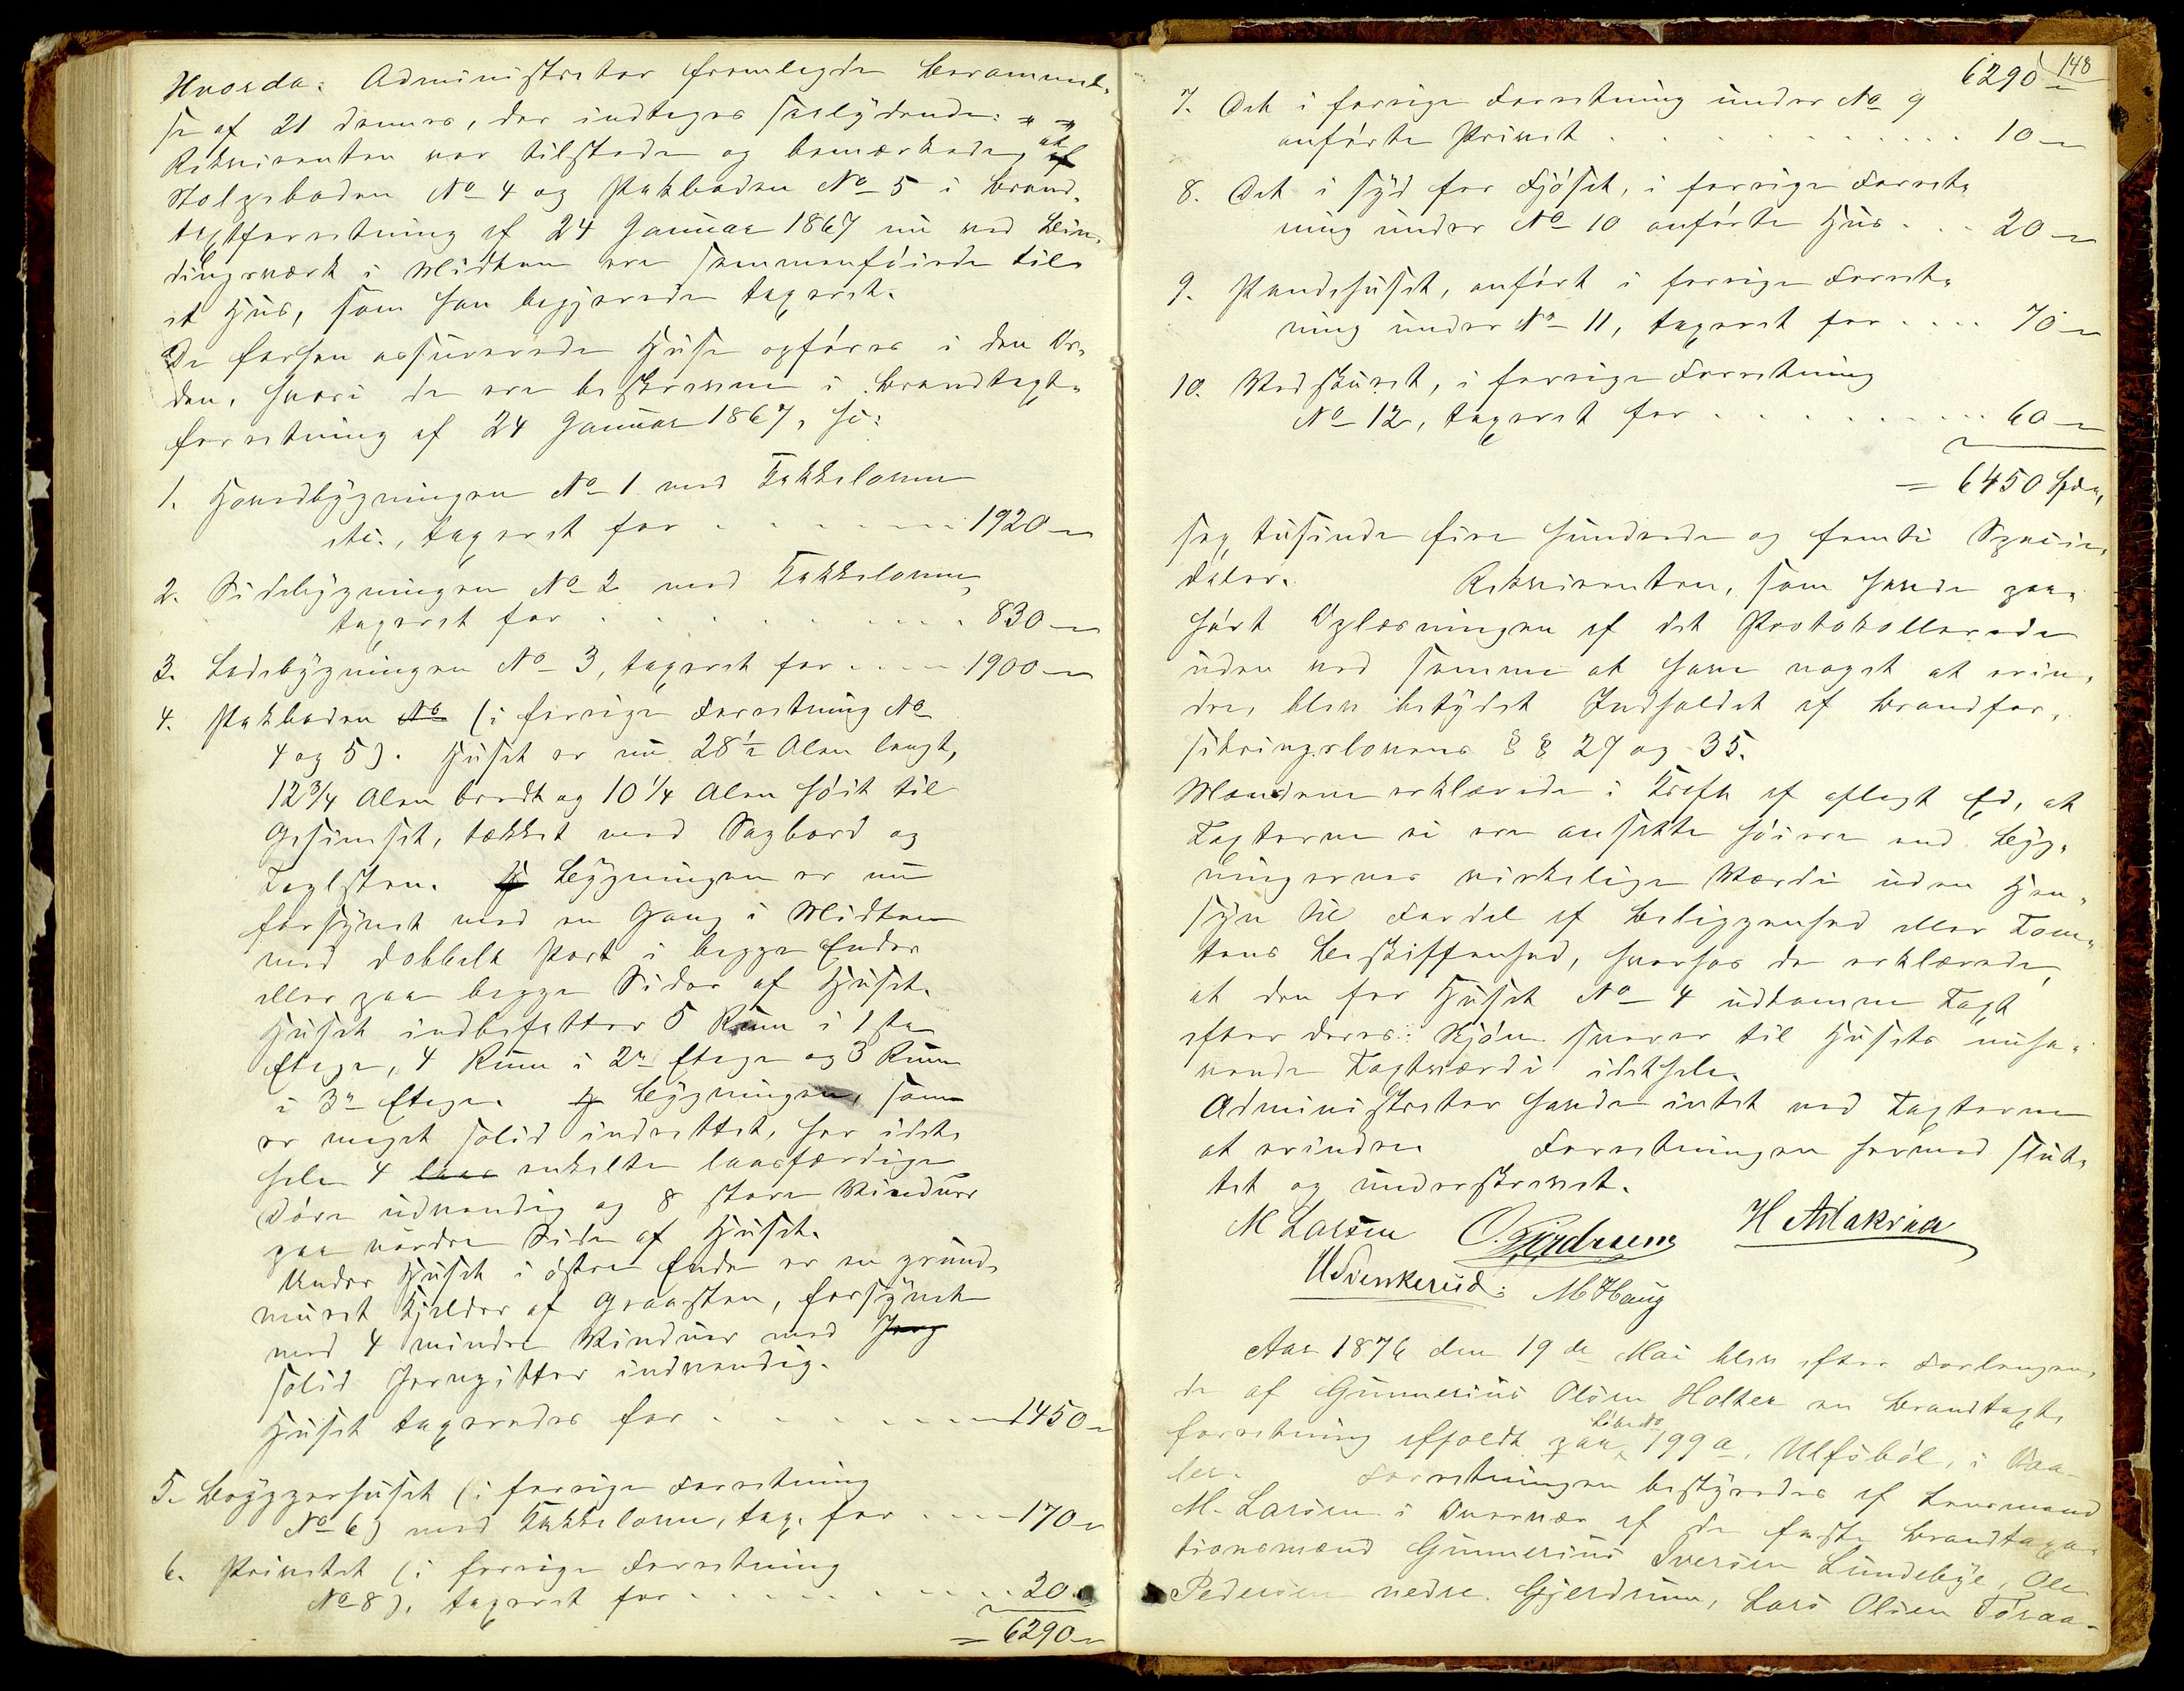 Hvorda: Administrator fremlagde Berammel-
se af 21 dennes, der indtages saalydende: " "
Rekvirenten var tilstede og bemærkede, at
Stolpeboden No 4 og Pakboden No 5 i Brand-
taxtforretning af 24 Januar 1867 nu ved Bin-
dingsværk i Midten ere sammenføiede til
et Hus, som han begjærede taxeret.
De forhen assurerede Huse opføres i den Or-
den, hvori de ere beskrevne i Brandtaxt-
forretning af 24 Januar 1867, so:
1. Hovedbygningen No 1 med Kakkelovne
etc., taxeret for . . . . . . 1920 -
2. Sidebygningen No 2 med Kakkelovne,
taxeret for . . . . . . . . . 830 -
3. Ladebygningen No 3, taxeret for . . . . 1900 -
4. Pakboden No (i forrige Forretning No
4 og 5). Huset er nu 28 1/2 Alen langt,
12 3/4 Alen bredt og 10 1/4 Alen høit til
Gesimset, tækket med Sagbord og
Taglsten. Bygningen er nu
forsynet med en Gang i Midten
med dobbelt Port i begge Ender
eller paa begge Sider af Huset.
Huset indbefatter 5 Rum i 1ste
Etage, 4 Rum i 2n Etage og 3 Rum
i 3n Etage. Bygningen, som
er meget solid indrettet, har idet-
hele 4 laas enkelte laasfærdige
Døre udvendig og 8 store Vinduer
paa nordre Side af Huset.
Under Huset i østre Ende er en grund-
muret Kjelder af Graasten, forsynet
med 4 mindre Vinduer med Jerng
solid Jerngitter indvendig.
Huset taxeredes for . . . . . . 1450 -
5. Bryggerhuset (i forrige Forretning
No 6) med Kakkelovn, tax. for . . . 170 -
6. Privetet (i forrige Forretning
No 8), taxeret for . . . . . . . . 20 -
= 6290 -
148
6290 -
7. Det i forrige Forretning under No 9
anførte Privet . . . . . . . . . 10 -
8. Det i syd for Fjøset, i forrige Forret-
ning under No 10 anførte Hus . . . 20 -
9. Pandehuset, anført i forrige Forret-
ning under No 11, taxeret for . . . . 70 -
10. Vedskuret, i forrige Forretning
No 12, taxeret for . . . . . . . . . 60 -
= 6450 Spd.,
sex tusinde fire hundrede og femti Specie-
daler. Rekvirenten, som havde paa-
hørt Oplæsningen af det Protokollerede
uden ved samme at have noget at erin-
dre, blev betydet Indholdet af Brandfor-
sikringslovens § § 27 og 35.
Mændene erklærede i Kraft af aflagt Ed, at
Taxterne ei ere ansatte høiere end Byg-
ningernes virkelige Værdi uden Hen-
syn til Fordel af Beliggenhed eller Tom-
tens Beskaffenhed, hvorhos de erklærede,
at den for Huset No 4 udkomne Taxt
efter deres Skjøn svarer til Husets nuha-
vende Taxtværdi idethele.
Administrator havde intet ved Taxterne
at erindre. Forretningen hermed slut-
tet og underskrevet.
M Larsen H Aslakrud
U Svenkerud: M Haug
Aar 1876 den 19de Mai blev efter Forlangen-
de af Gunnerius Olsen Holter en Brandtaxt-
forretning afholdt paa Løbe No 199 a, Ulfsbøl, i Vaa-
ler. Forretningen bestyredes af Lensmand
M. Larsen i Overvær af de faste Brandtaxa-
tionsmænd Gunnerius Iversen Lundebye, Ole
Pedersen nedre Gjerdrum, Lars Olsen Toraa-